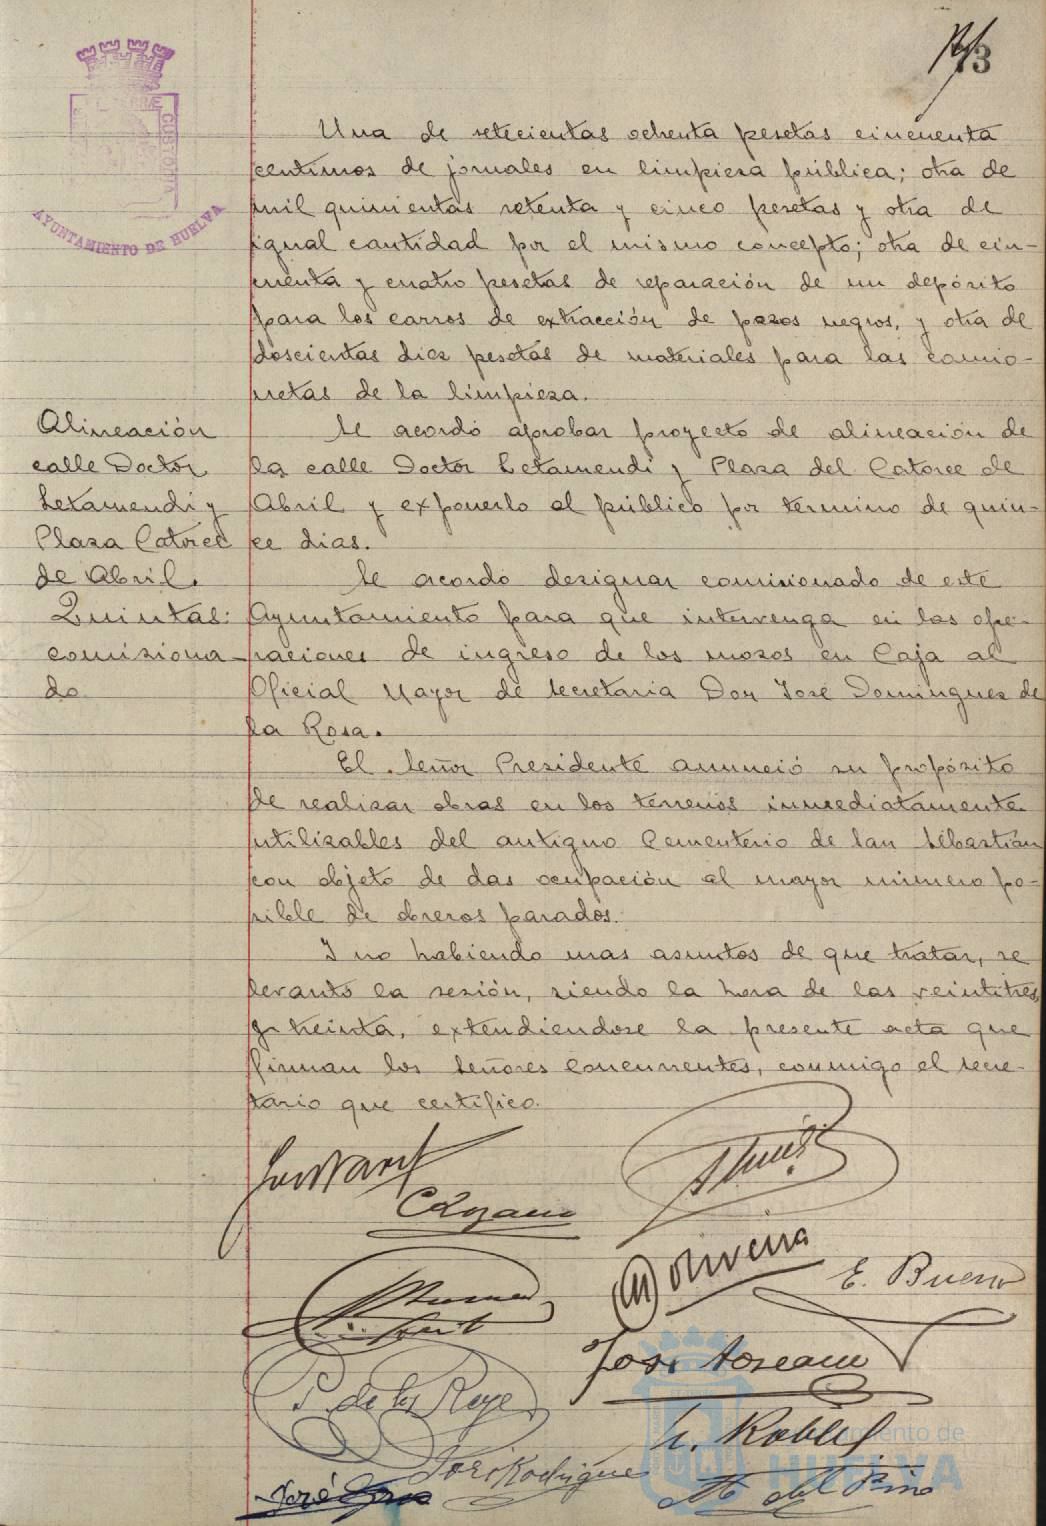 73
AYUNTAMIENTO DE HUELVA
Una de setecientas ochenta pesetas cincuenta
centimos de jornales en limpieza pública; otra de
mil quinientas setenta y cinco pesetas y otra de
igual cantidad por el mismo concepto; otra de cin-
cuenta y cuatro pesetas de reparación de un depósito
para los carros de extracción de pozos negros, y otra de
doscientas diez pesetas de materiales para las camio-
netas de la limpieza.
Alineación
calle Doctor
Letamendi y
Plaza Catorce
de Abril.
Se acordó aprobar proyecto de alineación de
la calle Doctor Letamendi y Plaza del Catorce de
Abril y exponerlo al público por termino de quin-
ce dias.
Quintas:
comisiona-
do
Se acordó designar comisionado de este
Ayuntamiento para que intervenga en las ope-
raciones de ingreso de los mozos en Caja al
Oficial Mayor de Secretaria Don José Dominguez de
la Rosa.
El Señor Presidente anunció su propósito
de realizar obras en los terrenos inmediatamente
utilizables del antiguo Cementerio de San Sebastián
con objeto de das ocupación al mayor número po-
sible de obreros parados.
Y no habiendo mas asuntos de que tratar, se
levantó la sesión, siendo la hora de las veintitres
y treinta, extendiendose la presente acta que
firman los Señores Concurrentes, conmigo el Secre-
tario que certifico.
Oliveira
E. Bueno
P. de los Reyes
L. Robles
José Rodríguez
M. del Pino
José
Ayuntamiento de
HUELVA